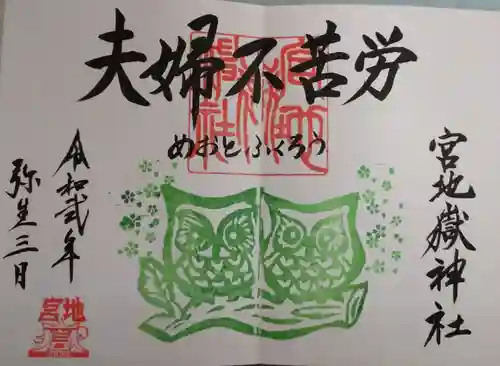 夫婦不苦労
めおとふくろう
宮地嶽神社
令和弐年
弥生三日
宮地